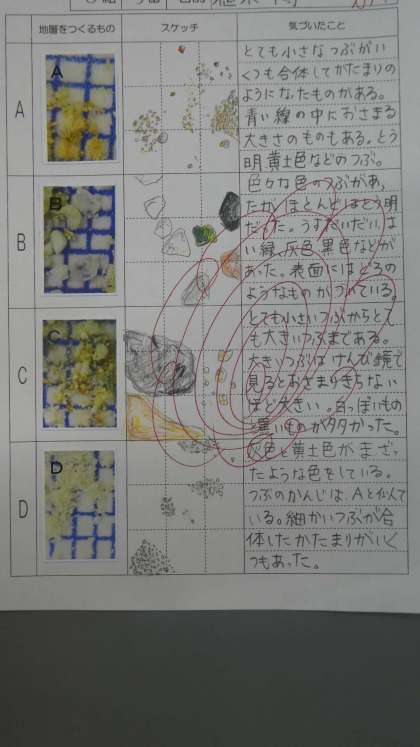 地層をつくるもの
スケッチ
気づいたこと
A
A
とても小さなつぶがい
くつも合体してかたまりの
ようになたものがある。
青い線の中におさまる
大きさのものもある。とう
明黄土色などのつぶ。
B
B
色々な色のつぶがあ,
たが、ほとんどはとう明
だった。うすだいだい、は
い緑、灰色黒色などが
あった。表面にはどろの
ようなものがついている。
C
C
とても小さいつぶからとて
も大きいつぶまである。
大きいつぶはけんび鏡で
見るとおさまりきらない
ほど大きい。白っぽいもの
黒いものが多かった。
D
D
灰色と黄土色がまざっ
たような色をしている。
つぶのかんじは、Aと似て
いる。細かいつぶが合
体したかたまりがいく
つもあった。